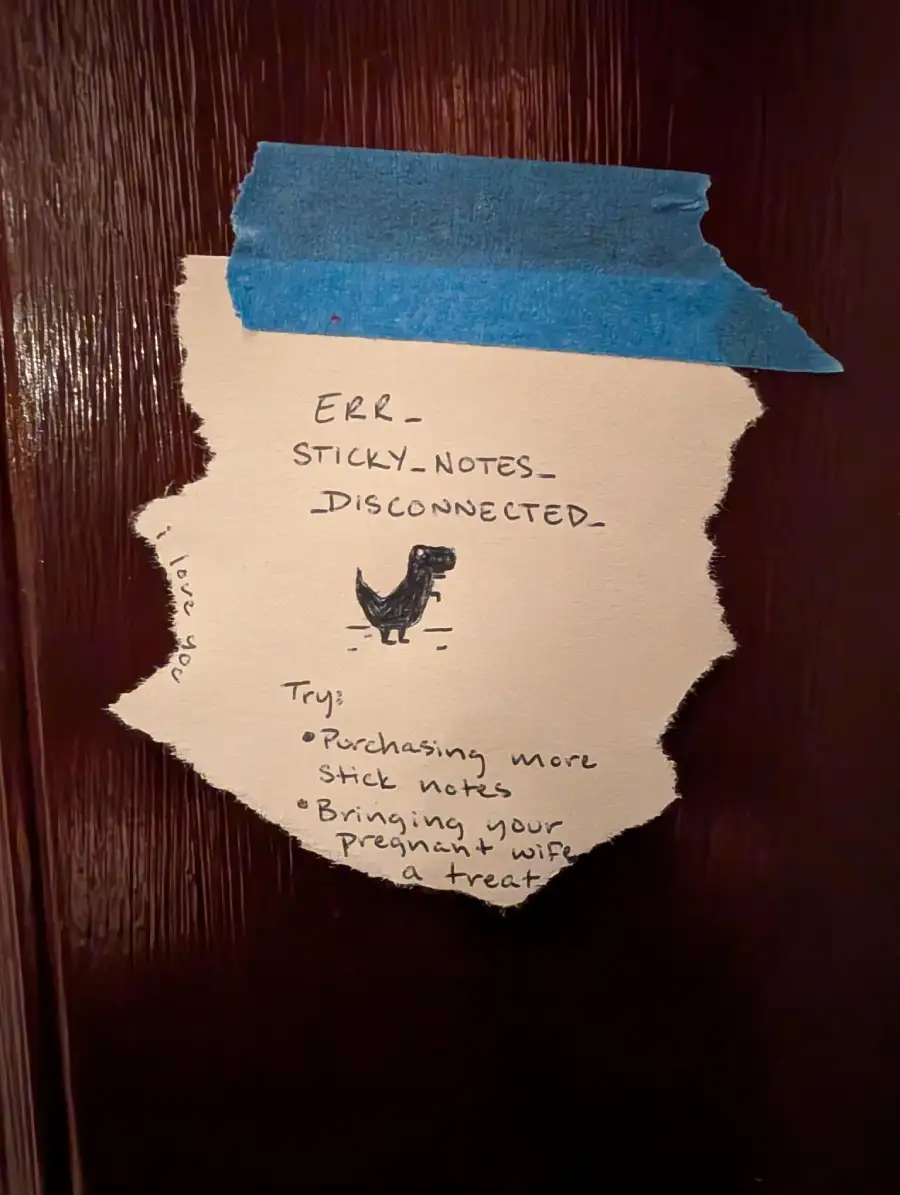 ERR_
STICKY_NOTES_
_DISCONNECTED_
Try:
•Purchasing more
stick notes
•Bringing your
pregnant wife
a treat
i love you